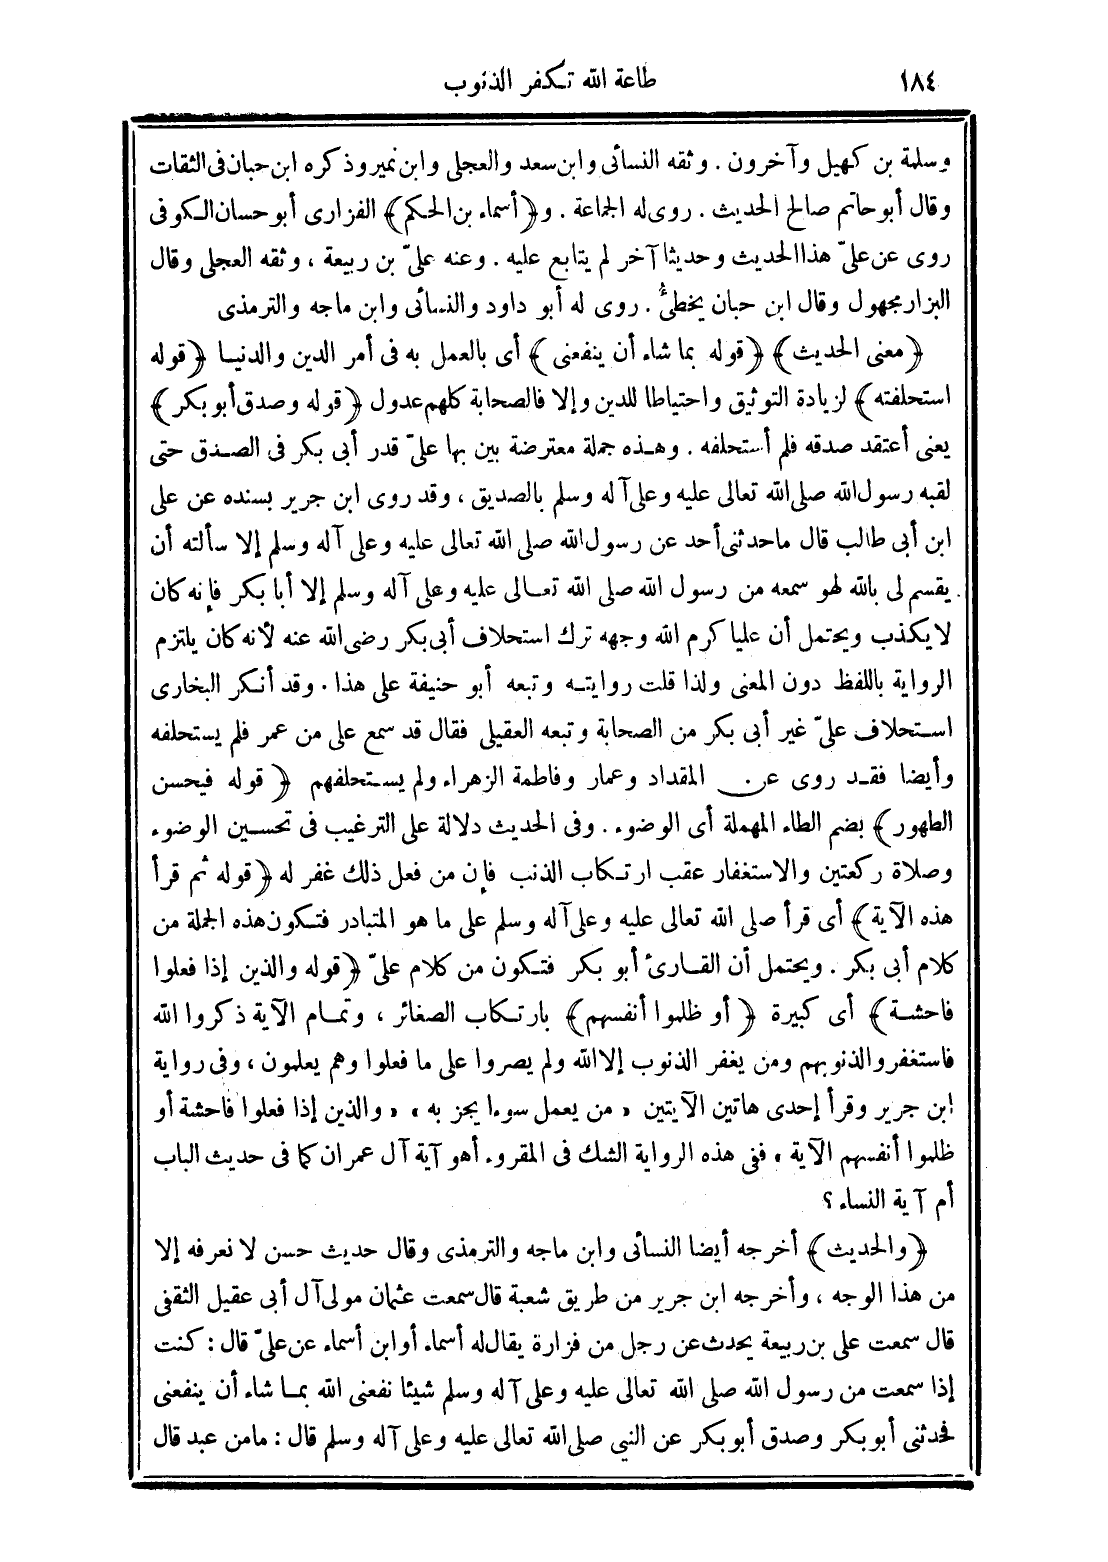 ١٨٤
طاعة الله تكفر الذنوب
وسلمة بن كهيل وآخرون . وثقه النسائى وابن سعد والعجلى وابن نمير وذكره ابن حبان فى الثقات
وقال أبو حاتم صالح الحديث . روى له الجماعة . و﴿أسماء بن الحكم﴾ الفزارى أبو حسان الكوفى
روى عن علىّ هذا الحديث وحديثا آخر لم يتابع عليه . وعنه علىّ بن ربيعة ، وثقه العجلى وقال
البزار مجهول وقال ابن حبان يخطئ . روى له أبو داود والنسائى وابن ماجه والترمذى
﴿معنى الحديث﴾ ﴿قوله بما شاء أن ينفعنى﴾ أى بالعمل به فى أمر الدين والدنيا ﴿قوله
استحلفته﴾ لزيادة التوثيق واحتياطا للدين وإلا فالصحابة كلهم عدول ﴿قوله وصدق أبو بكر﴾
يعنى أعتقد صدقه فلم أستحلفه . وهذه جملة معترضة بين بها علىّ قدر أبى بكر فى الصدق حتى
لقبه رسول الله صلى الله تعالى عليه وعلى آله وسلم بالصديق ، وقد روى ابن جرير بسنده عن على
ابن أبى طالب قال ما حدثنى أحد عن رسول الله صلى الله تعالى عليه وعلى آله وسلم إلا سألته أن
يقسم لى بالله لهو سمعه من رسول الله صلى الله تعالى عليه وعلى آله وسلم إلا أبا بكر فإنه كان
لا يكذب ويحتمل أن عليا كرم الله وجهه ترك استحلاف أبى بكر رضى الله عنه لأنه كان يلتزم
الرواية باللفظ دون المعنى ولذا قلت روايته وتبعه أبو حنيفة على هذا . وقد أنكر البخارى
استحلاف علىّ غير أبى بكر من الصحابة وتبعه العقيلى فقال قد سمع على من عمر فلم يستحلفه
وأيضا فقد روى عن المقداد وعمار وفاطمة الزهراء ولم يستحلفهم ﴿قوله فيحسن
الطهور﴾ بضم الطاء المهملة أى الوضوء . وفى الحديث دلالة على الترغيب فى تحسين الوضوء
وصلاة ركعتين والاستغفار عقب ارتكاب الذنب فإن من فعل ذلك غفر له ﴿قوله ثم قرأ
هذه الآية﴾ أى قرأ صلى الله تعالى عليه وعلى آله وسلم على ما هو المتبادر فتكون هذه الجملة من
كلام أبى بكر . ويحتمل أن القارئ أبو بكر فتكون من كلام علىّ ﴿قوله والذين إذا فعلوا
فاحشة﴾ أى كبيرة ﴿أو ظلموا أنفسهم﴾ بارتكاب الصغائر ، وتمام الآية ذكروا الله
فاستغفروا لذنوبهم ومن يغفر الذنوب إلا الله ولم يصروا على ما فعلوا وهم يعلمون ، وفى رواية
ابن جرير وقرأ إحدى هاتين الآيتين « من يعمل سوءا يجز به » « والذين إذا فعلوا فاحشة أو
ظلموا أنفسهم الآية » ففى هذه الرواية الشك فى المقروء أهو آية آل عمران كما فى حديث الباب
أم آية النساء ؟
﴿والحديث﴾ أخرجه أيضا النسائى وابن ماجه والترمذى وقال حديث حسن لا نعرفه إلا
من هذا الوجه ، وأخرجه ابن جرير من طريق شعبة قال سمعت عثمان مولى آل أبى عقيل الثقفى
قال سمعت على بن ربيعة يحدث عن رجل من فزارة يقال له أسماء أو ابن أسماء عن علىّ قال : كنت
إذا سمعت من رسول الله صلى الله تعالى عليه وعلى آله وسلم شيئا نفعنى الله بما شاء أن ينفعنى
فحدثنى أبو بكر وصدق أبو بكر عن النبى صلى الله تعالى عليه وعلى آله وسلم قال : ما من عبد قال